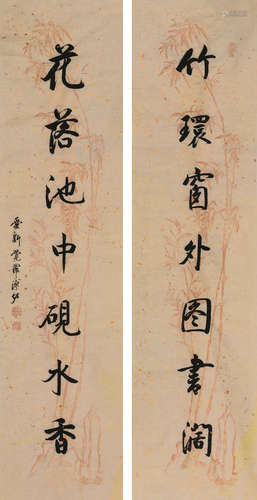 竹環窗外图書濶
花落池中硯水香
愛新覺羅溥佐